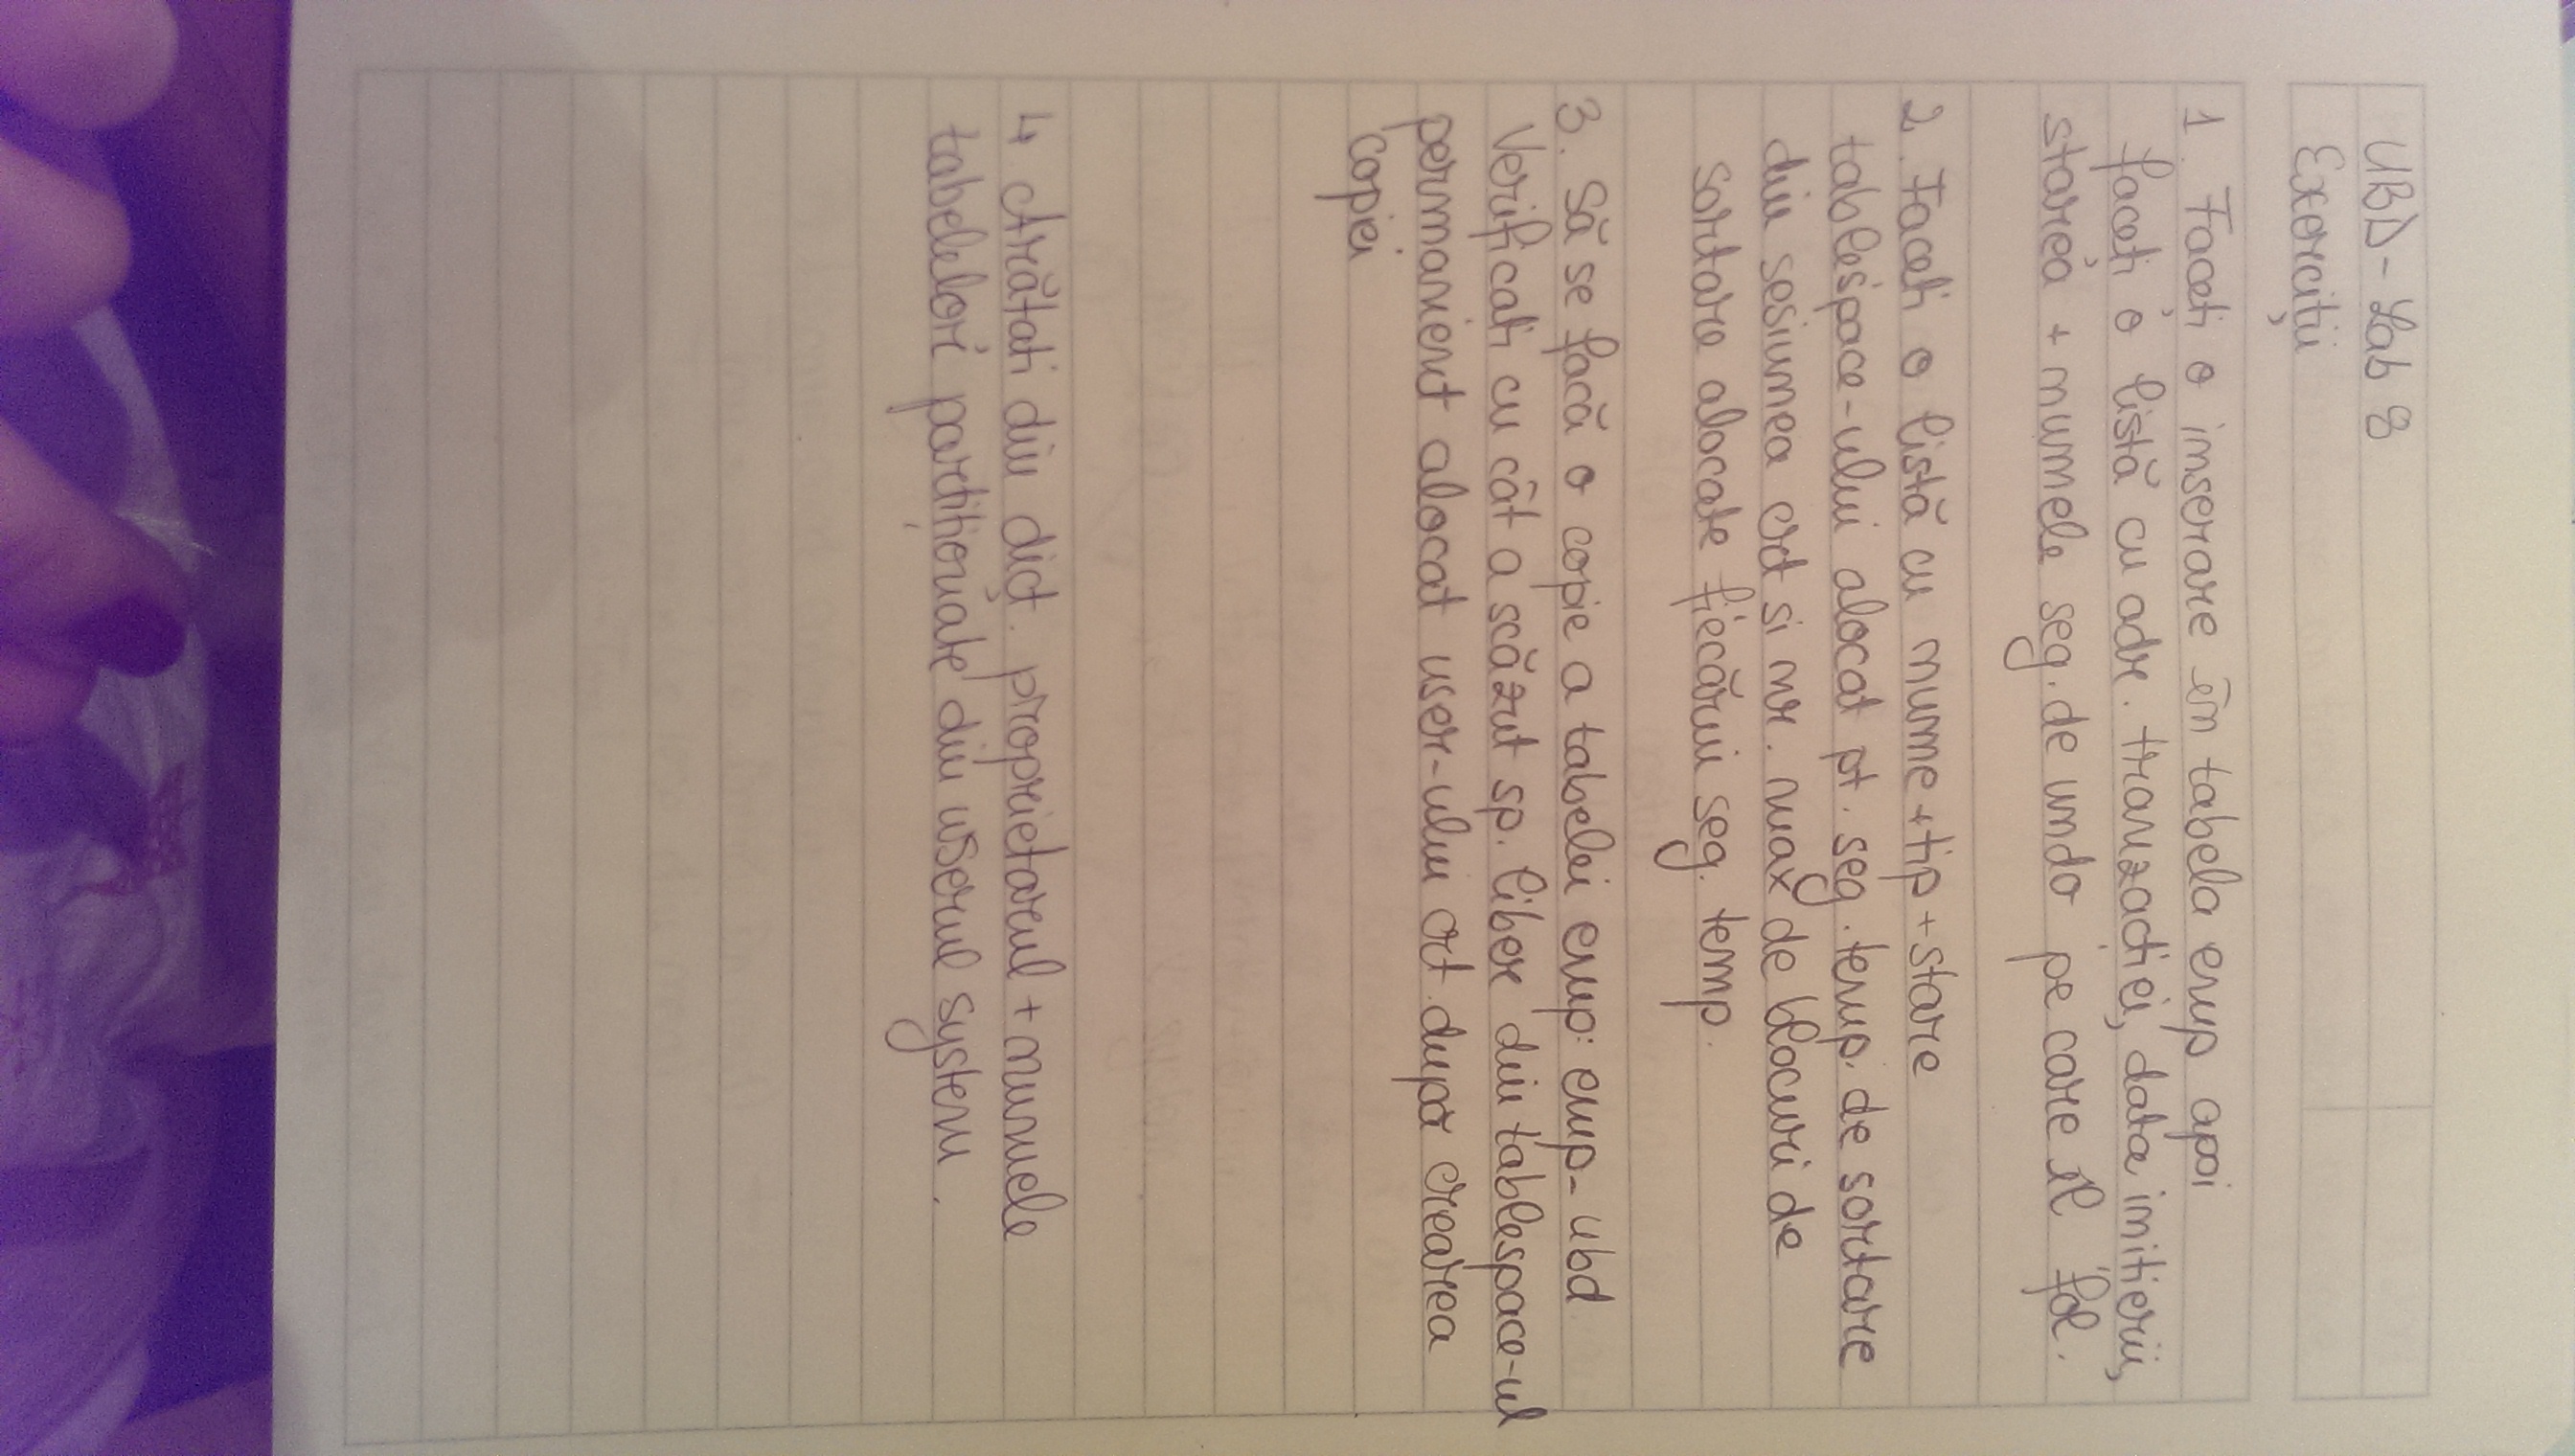 UBD - Lab 8
Exerciții
1. Faceti o inserare în tabela emp apoi
faceți o listă cu adr. tranzacției, data initierii,
starea + numele seg. de undo pe care îl fol.
2. Faceti o listă cu nume + tip + stare
tablespace-ului alocat pt. seg. temp. de sortare
din sesiunea crt si nr. max de blocuri de
sortare alocate fiecărui seg. temp.
3. Să se facă o copie a tabelei emp: emp-ubd
Verificati cu cât a scăzut sp. liber din tablespace-ul
permanent alocat user-ului crt. dupa crearea
copiei
4. Arătati din dict. proprietarul + numele
tabelelor partiționate din userul system.